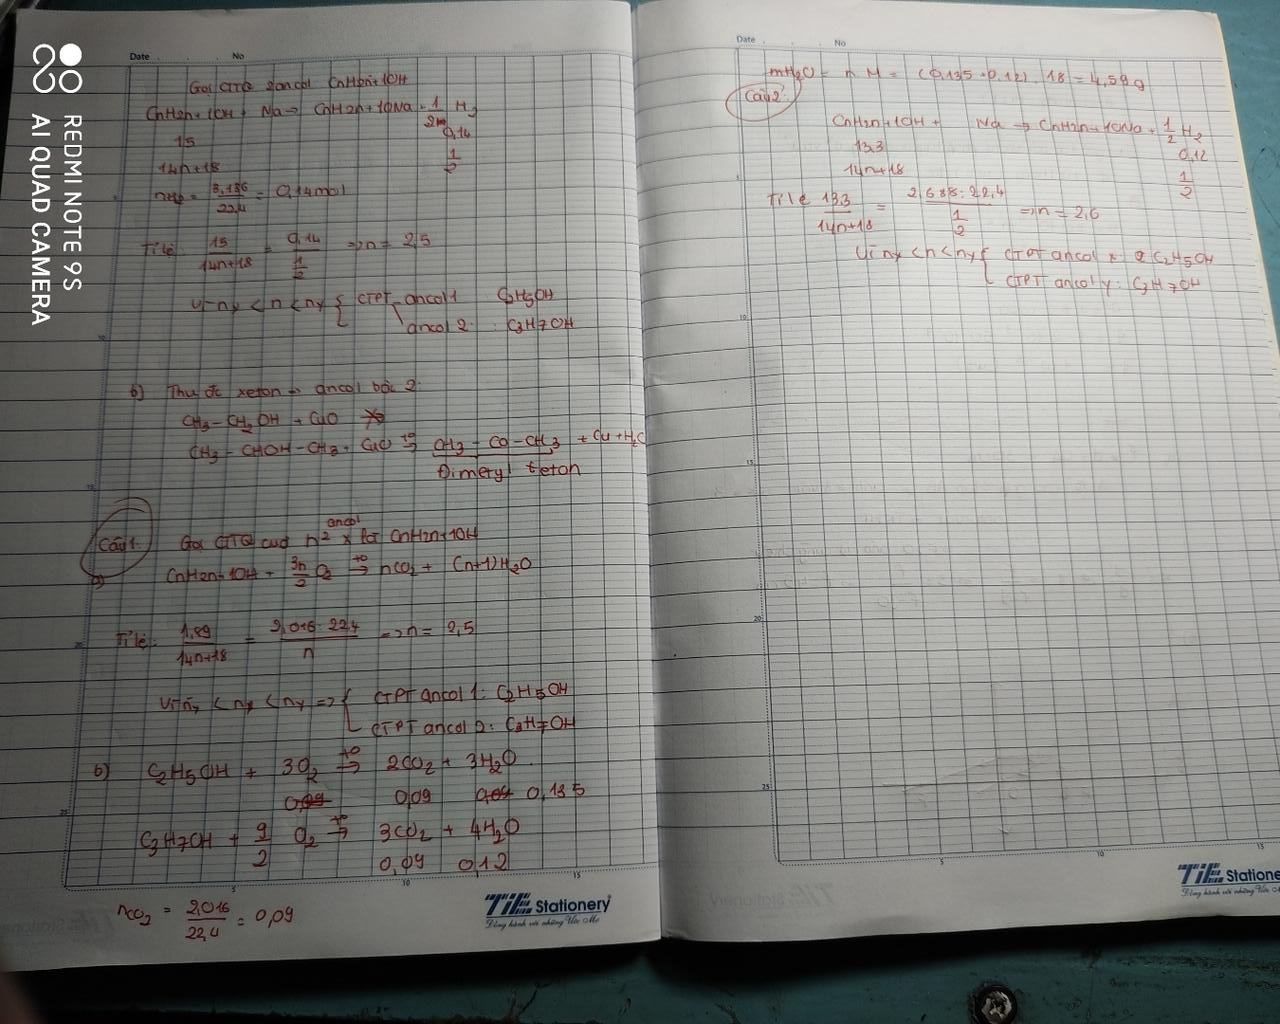 REDMI NOTE 9S
AI QUAD CAMERA
Date No
Gọi CTTQ 2 ancol CnH2n+1OH
CnH2n+1OH + Na → CnH2n+1ONa + 1/2 H2
15 0,14
14n+18 1/2
nH2 = 3,136/22,4 = 0,14 mol
Tỉ lệ: 15/14n+18 = 0,14/1/2 => n = 2,5
Vì nx < n < ny { CTPT ancol 1 C2H5OH
ancol 2 : C3H7OH
b) Thu đc xeton → ancol bậc 2
CH3-CH2OH + CuO
CH3-CHOH-CH3 + CuO to→ CH3-CO-CH3 + Cu + H2O
Đimetyl xeton
Câu 1
Gọi CTTQ của n2 ancol x là: CnH2n+1OH
a) CnH2n+1OH + 3n/2 O2 to→ nCO2 + (n+1)H2O
Tỉ lệ: 1,89/14n+18 = 2,016:22,4/n => n = 2,5
Vì nx < nx < ny => { CTPT ancol 1: C2H5OH
CTPT ancol 2: C3H7OH
b) C2H5OH + 3O2 to→ 2CO2 + 3H2O
0,09 0,09 0,09 0,135
C3H7OH + 9/2 O2 to→ 3CO2 + 4H2O
0,09 0,12
nCO2 = 2,016/22,4 = 0,09
TiE Stationery
Đồng hành với những Ước Mơ
Date No
mH2O = n.M = (0,135+0,12).18 = 4,59g
Câu 2
CnH2n+1OH + Na → CnH2n+1ONa + 1/2 H2
13,3 0,12
14n+18 1/2
Tỉ lệ 13,3/14n+18 = 2,688:22,4/1/2 => n = 2,6
Vì nx < n < ny { CTPT ancol x C2H5OH
CTPT ancol y: C3H7OH
TiE Statione